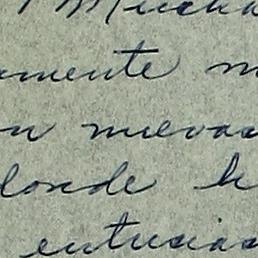 Mucha
mente m
n nuevas
donde h
entusias